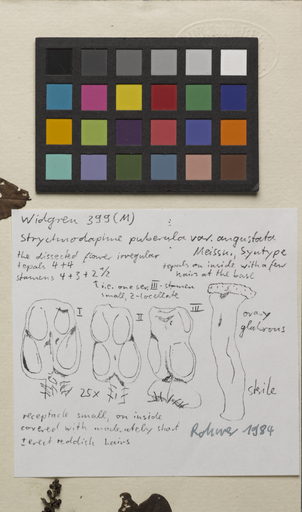 Widgren 399 (M)
Strychnodaphne puberula var. angustata
Meissn., Syntype
the dissected flower irregular
tepals 4+4
stamens 4+3+2 1/2
tepals on inside with a few
hairs at the base
i.e. one ser. III-stamen
small, 2-locellate
I
II
III
ovary
glabrous
25x
stile
receptacle small, on inside
covered with moderately short
± erect reddish hairs
Rohwer 1984